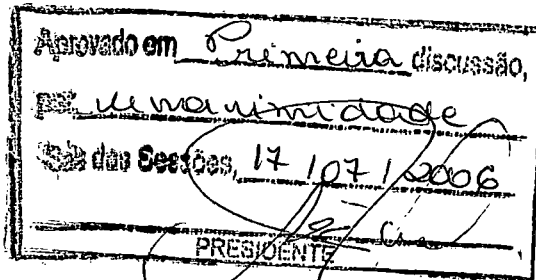 Aprovado em Primeira discussão,
por unanimidade
Sala das Sessões, 17/07/2006
PRESIDENTE